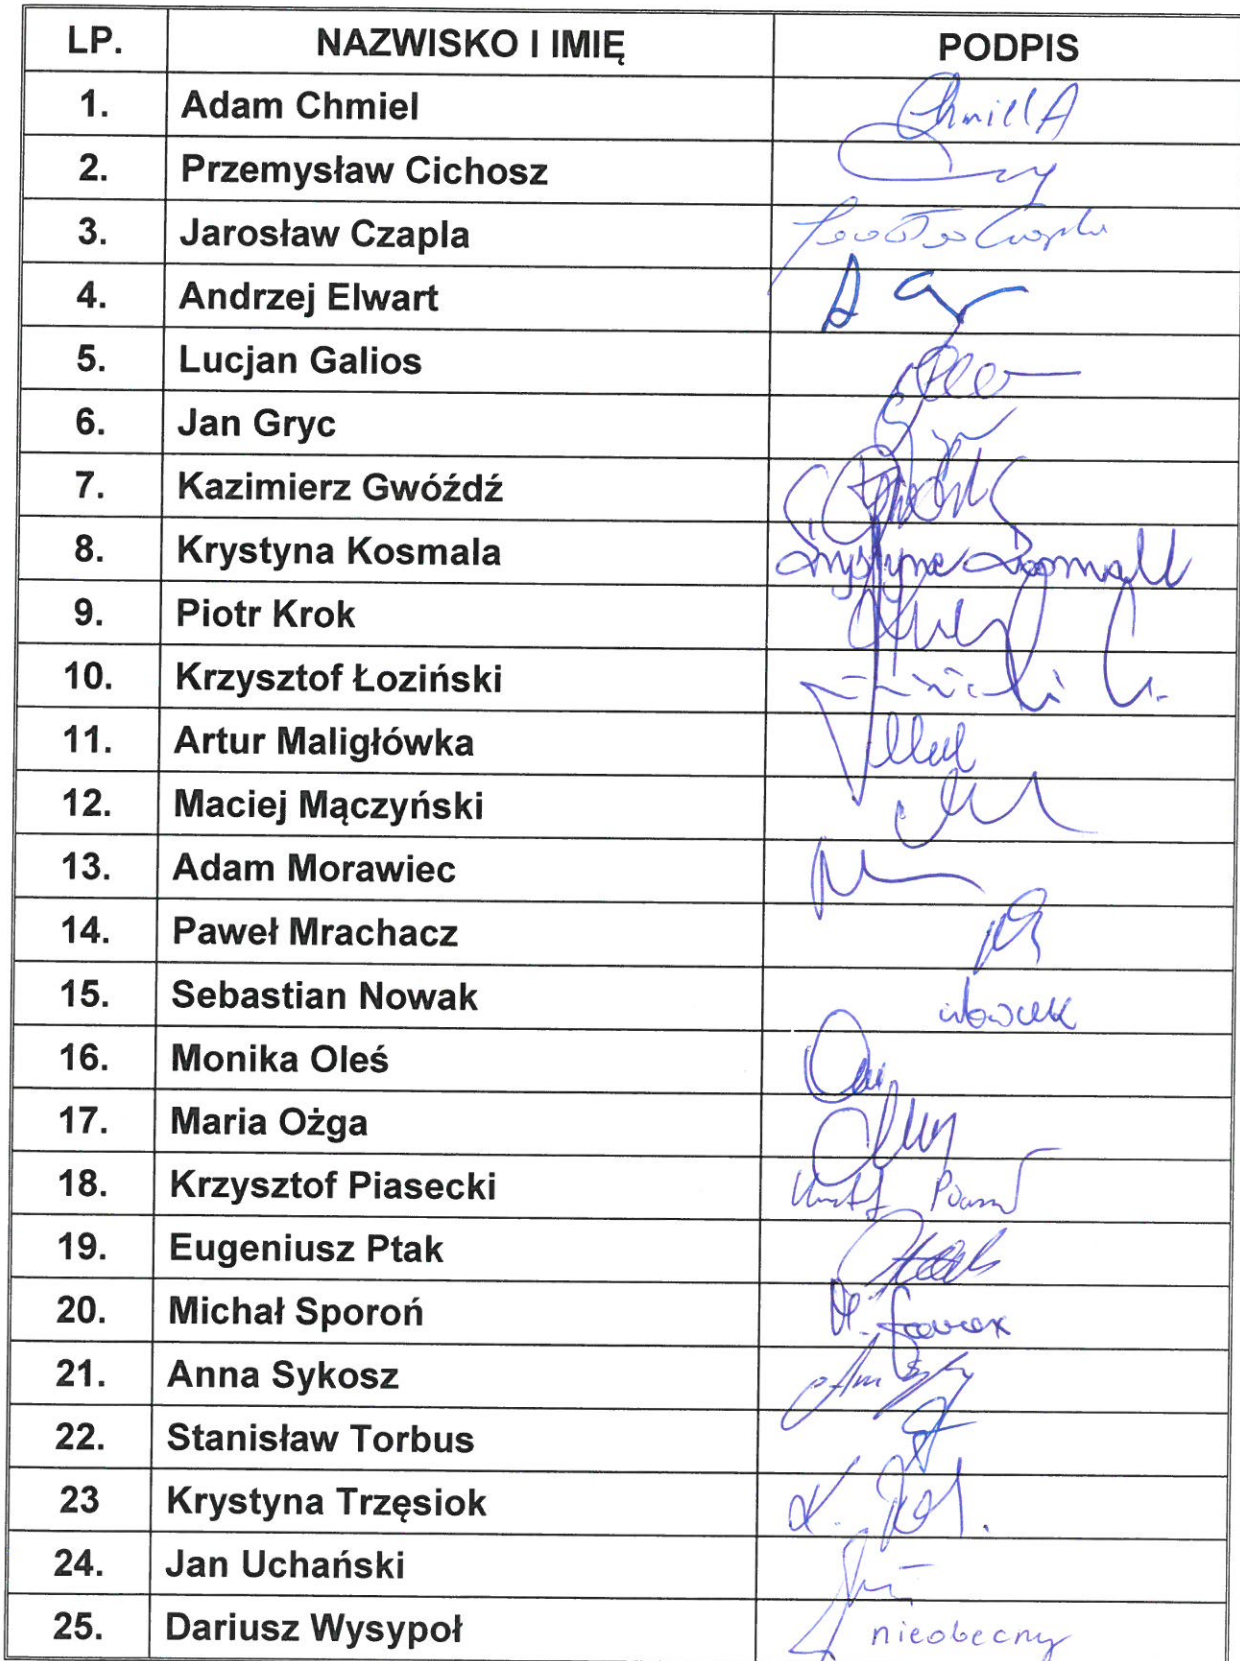 LP. NAZWISKO I IMIĘ PODPIS
1. Adam Chmiel Chmiel A
2. Przemysław Cichosz
3. Jarosław Czapla Czapla
4. Andrzej Elwart
5. Lucjan Galios
6. Jan Gryc
7. Kazimierz Gwóźdź
8. Krystyna Kosmala Krystyna Kosmala
9. Piotr Krok
10. Krzysztof Łoziński
11. Artur Maligłówka
12. Maciej Mączyński
13. Adam Morawiec
14. Paweł Mrachacz
15. Sebastian Nowak Nowak
16. Monika Oleś
17. Maria Ożga
18. Krzysztof Piasecki
19. Eugeniusz Ptak
20. Michał Sporoń
21. Anna Sykosz
22. Stanisław Torbus
23 Krystyna Trzęsiok
24. Jan Uchański
25. Dariusz Wysypoł nieobecny